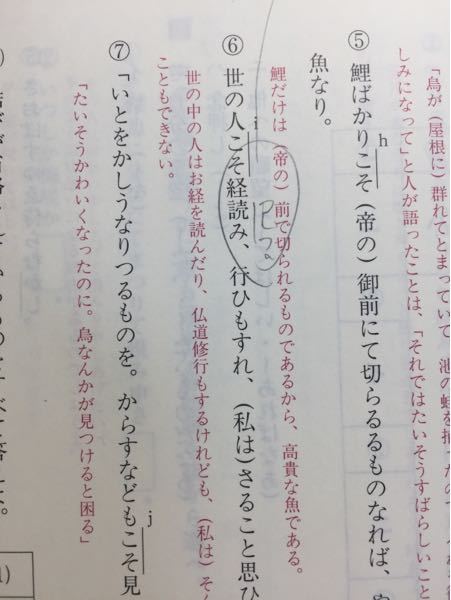 「烏が（屋根に）群れてとまっていて、池の蛙を捕ったので
しみになって」と人が語ったことは、「それではたいそうすばらしいこと
h
⑤ 鯉ばかりこそ（帝の）御前にて切らるるものなれば、
魚なり。
鯉だけは（帝の）前で切られるものであるから、高貴な魚である。
i
⑥ 世の人こそ経読み、行ひもすれ、（私は）さること思ひ
世の中の人はお経を読んだり、仏道修行もするけれども、（私は）そ
こともできない。
j
⑦ 「いとをかしうなりつるものを。からすなどもこそ見
「たいそうかわいくなったのに。烏なんかが見つけると困る」